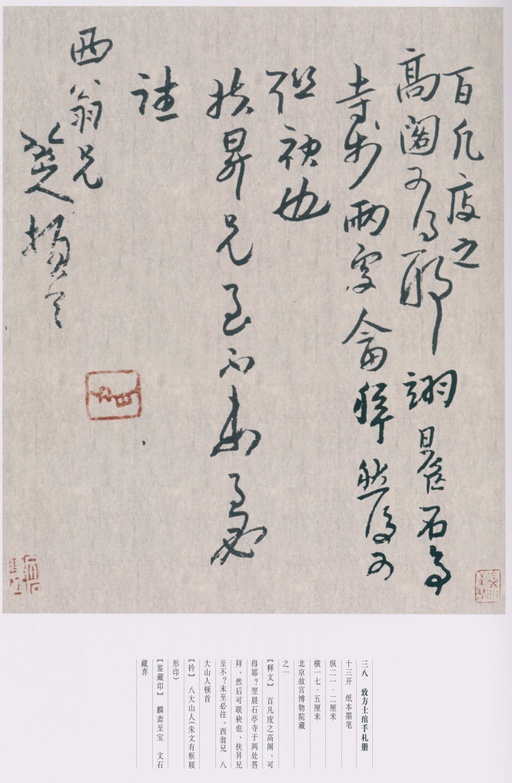 百凡庋之
高閣可得耶翊日晨石亭
寺於兩處畣拜然後可
聯袂也
扶昇兄至不未至必
往
西翁兄
八大山人頓首
三八 致方士琯手札册
十三开 纸本墨笔
纵二一·二厘米
横一七·五厘米
北京故宫博物院藏
之一
【释文】 百凡庋之高阁,可
得耶?翌晨石亭寺于两处答
拜,然后可联袂也,扶昇兄
至不?未至必往。西翁兄 八
大山人顿首
【钤】 八大山人(朱文有框屐
形印)
【鉴藏印】 麟斋至宝 文石
藏弆